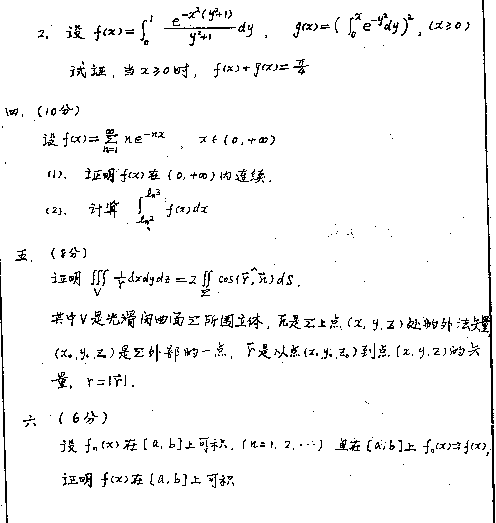 2. 设 f(x)=∫₀¹ e^{-x²(y²+1)}/(y²+1) dy , g(x)=(∫₀ˣ e^{-y²}dy)², (x≥0)
试证, 当 x≥0时, f(x)+g(x)=π/4
四. (10分)
设 f(x)=∑_{n=1}^∞ n e^{-nx} , x∈(0,+∞)
(1). 证明 f(x) 在 (0,+∞) 内连续.
(2). 计算 ∫_{ln2}^{ln3} f(x)dx
五. (8分)
证明 ∭_V 1/r dxdydz = 2∬_Σ cos(r⃗,^n⃗) dS.
其中V是光滑闭曲面Σ所围立体, n⃗是Σ上点(x,y,z)处的外法矢量
(x₀,y₀,z₀)是Σ外部的一点, r⃗是以点(x₀,y₀,z₀)到点(x,y,z)的矢
量, r=|r⃗|.
六 (6分)
设 fₙ(x) 在[a,b]上可积, (n=1,2,⋯) 且在[a,b]上 fₙ(x)⇉f(x),
证明 f(x) 在[a,b]上可积